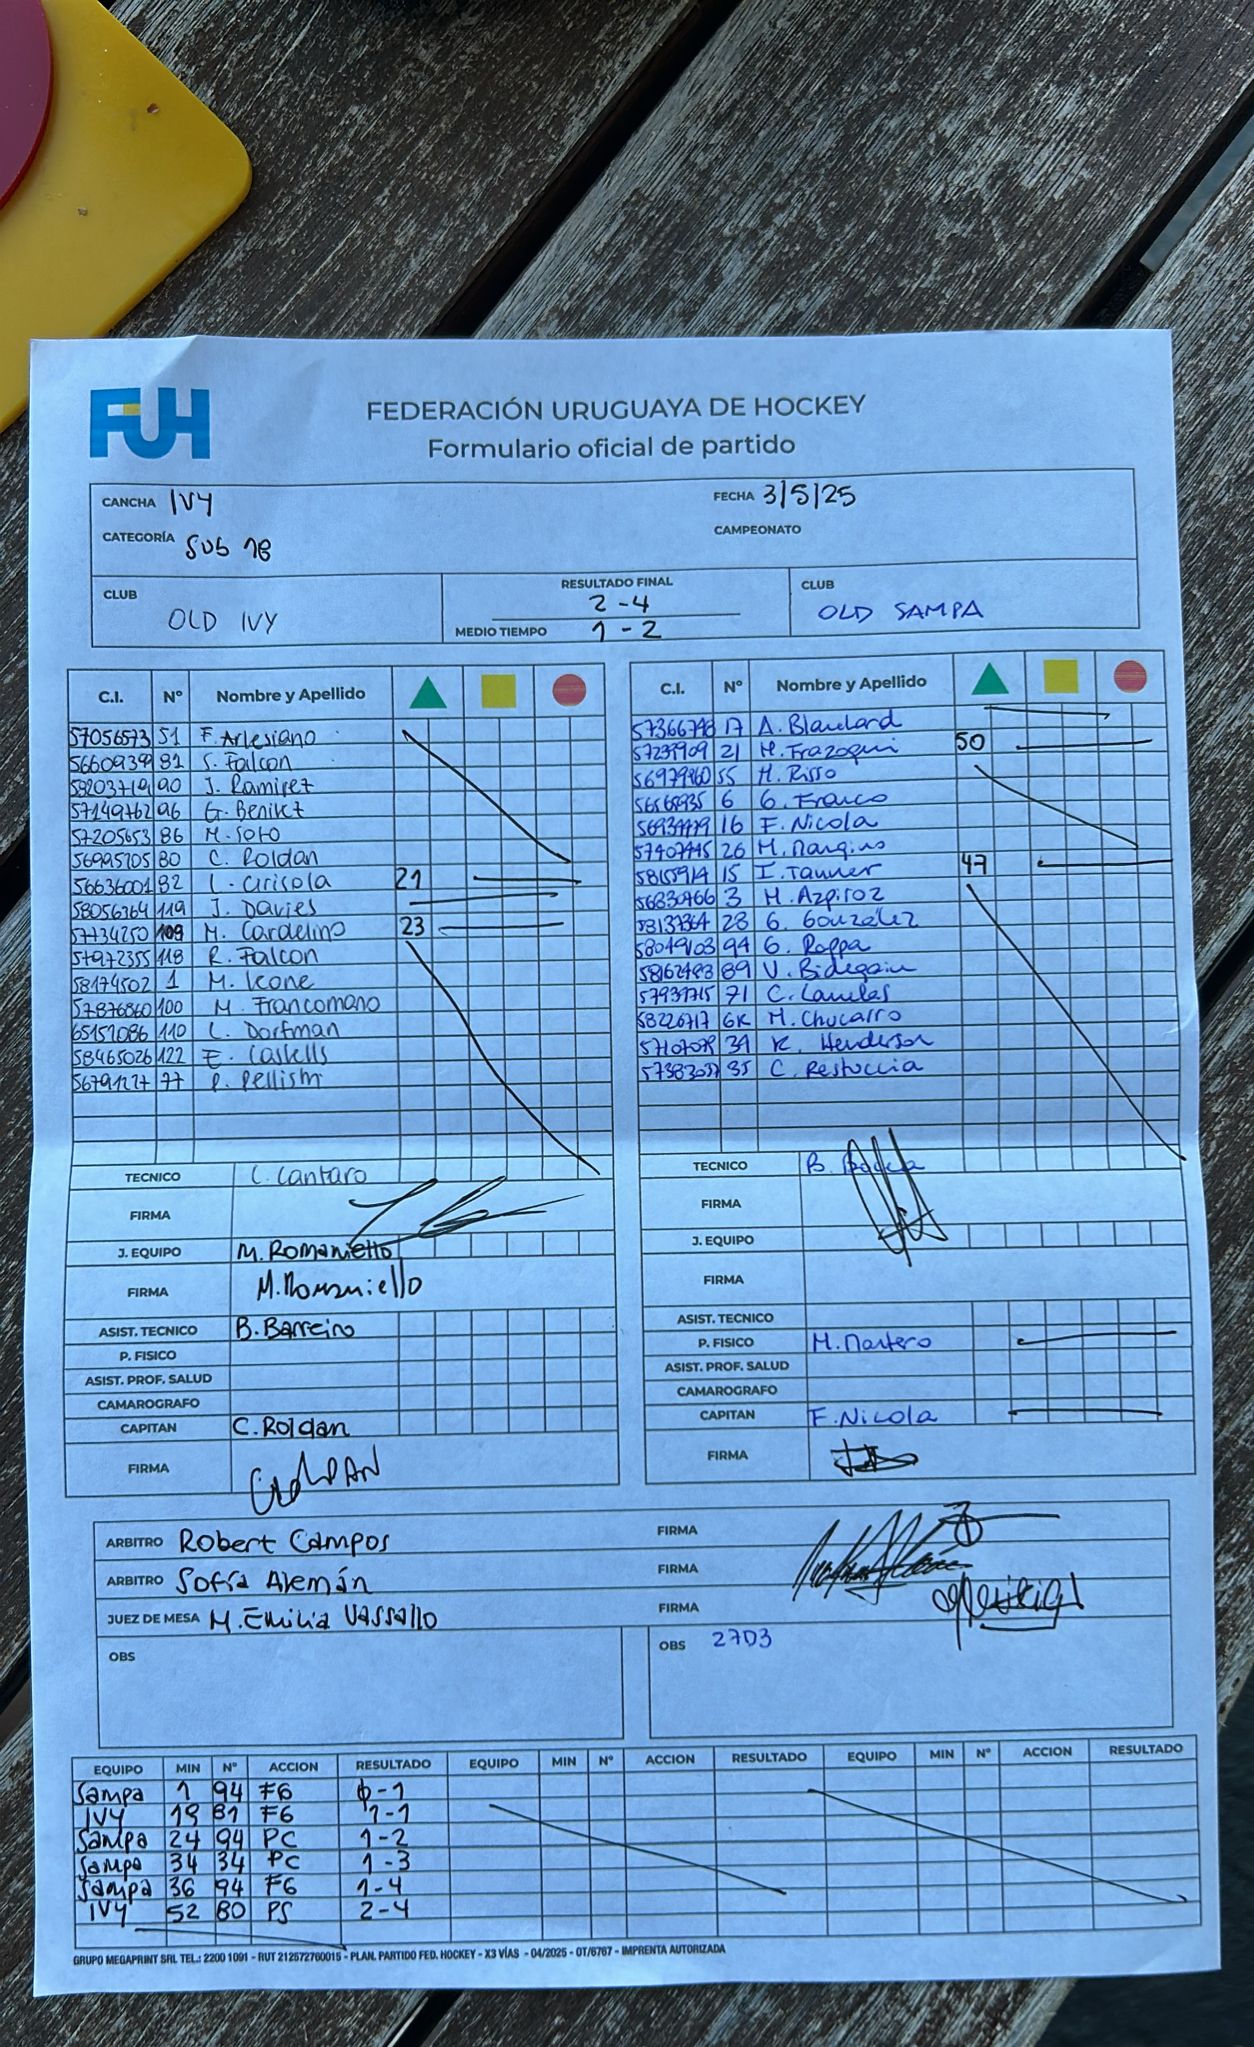 FUH
FEDERACIÓN URUGUAYA DE HOCKEY
Formulario oficial de partido
CANCHA IVY FECHA 3/5/25
CATEGORÍA SUB 18 CAMPEONATO
CLUB OLD IVY
RESULTADO FINAL
2-4
MEDIO TIEMPO 1-2
CLUB OLD SAMPA
C.I. Nº Nombre y Apellido
57056573 51 F. Artesiano
5660939 81 S. Falcon
58203719 90 J. Ramirez
57149762 96 G.
57205653 86 M. Soto
56995205 80 C. Roldan
56636001 82 L. Cirisola 21
58056264 119 J. Davies
57734250 109 M. Cardelino 23
57972355 118 R. Falcon
58174502 1 M. Icone
57876860 100 M. Francomano
65151086 110 L. Dorfman
58465026 122 E. Castells
56791227 77 P.
TECNICO C. Cantaro
FIRMA
J. EQUIPO M. Romaniello
FIRMA M. Romaniello
ASIST. TECNICO B. Barreiro
P. FISICO
ASIST. PROF. SALUD
CAMAROGRAFO
CAPITAN C. Roldan
FIRMA
C.I. Nº Nombre y Apellido
57366798 17 A. Blanchard
57237909 21 M. Irazoqui 50
56979960 55 M. Risso
56568935 6 G. Franco
16 F. Nicola
57407445 26 M.
58155914 15 I. Tanner 47
56830766 3 M. Azpiroz
58137364 28 G. González
58049103 94 G. Rappa
58162483 89 V. Bidegain
57931715 71 C. Canelas
58226717 6K M. Chucarro
34 K. Henderson
35 C. Restuccia
TECNICO B.
FIRMA
J. EQUIPO
FIRMA
ASIST. TECNICO
P. FISICO M.
ASIST. PROF. SALUD
CAMAROGRAFO
CAPITAN F. Nicola
FIRMA
ARBITRO Robert Campos FIRMA
ARBITRO Sofía Alemán FIRMA
JUEZ DE MESA M. Emilia Vassallo FIRMA
OBS
OBS 2703
EQUIPO MIN Nº ACCION RESULTADO EQUIPO MIN Nº ACCION RESULTADO EQUIPO MIN Nº ACCION RESULTADO
Sampa 1 94 FG 0-1
IVY 19 81 FG 1-1
Sampa 24 94 PC 1-2
Sampa 34 34 PC 1-3
Sampa 36 94 FG 1-4
IVY 52 80 PS 2-4
GRUPO MEGAPRINT SRL TEL.: 2200 1091 - RUT 212572760015 - PLAN. PARTIDO FED. HOCKEY - X3 VÍAS - 04/2025 - OT/6767 - IMPRENTA AUTORIZADA